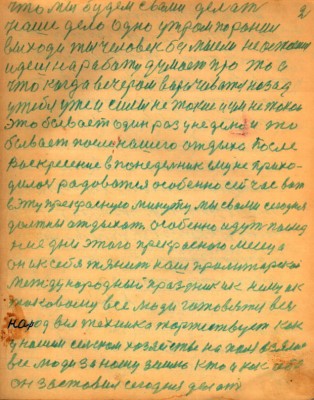 2
что мы будем с вами делать
наше дело одно утром порании
выходи ты человек бу мыслем не отстои
идеш на работу думает про то а
что когда вечером ворачиваты назад
у тебя уже и силы не токие и ум не токои
Это бывает один раз у неделю и это
бывает после нашего отдыха После
Воскресение в понеделник ему не прихо-
дилось радоватся особенно сейчас вот
в эту прекрасную минуту мы с вами сегодня
должны отдыхать особенно идут послед
ние дни этого прекрасного месяца
он их себя тянит наш пролитарскои
международный праздник и к нему и к
токовому все люди готовятся весь
народ вес техника торжествует как
у нашим сельском хозяйстве на полях взяло
все люди за нову землю Кто и как себя
он заставил сегодня делать